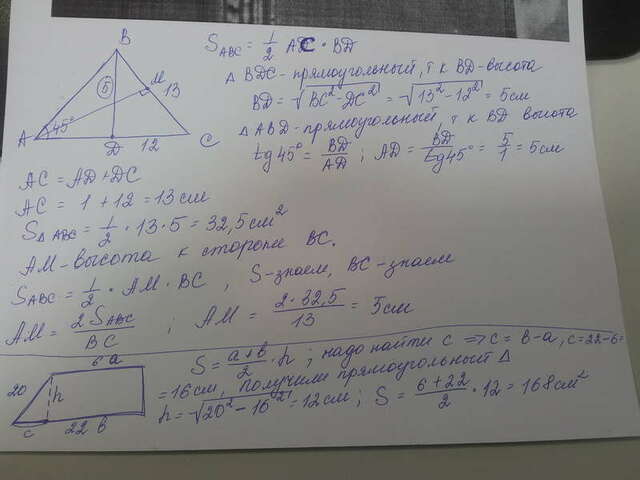 B
5
M
13
A
45°
D
12
C
S_ABC = 1/2 AC · BD
△ BDC - прямоугольный, т к BD - высота
BD = √(BC² - DC²) = √(13² - 12²) = 5 см
△ ABD - прямоугольный, т к BD высота
tg 45° = BD/AD ; AD = BD/tg45° = 5/1 = 5 см
AC = AD + DC
AC = 1 + 12 = 13 см
S△ABC = 1/2 · 13 · 5 = 32,5 см²
AM - высота к стороне BC.
S_ABC = 1/2 · AM · BC , S - знаем, BC - знаем
AM = 2S_ABC/BC ; AM = 2 · 32,5/13 = 5 см
6 a
20
h
c
22 b
S = (a+b)/2 · h ; надо найти c ⇒ c = b - a, c = 22 - 6 =
= 16 см, получили прямоугольный △
h = √(20² - 16²) = 12 см ; S = (6 + 22)/2 · 12 = 168 см²